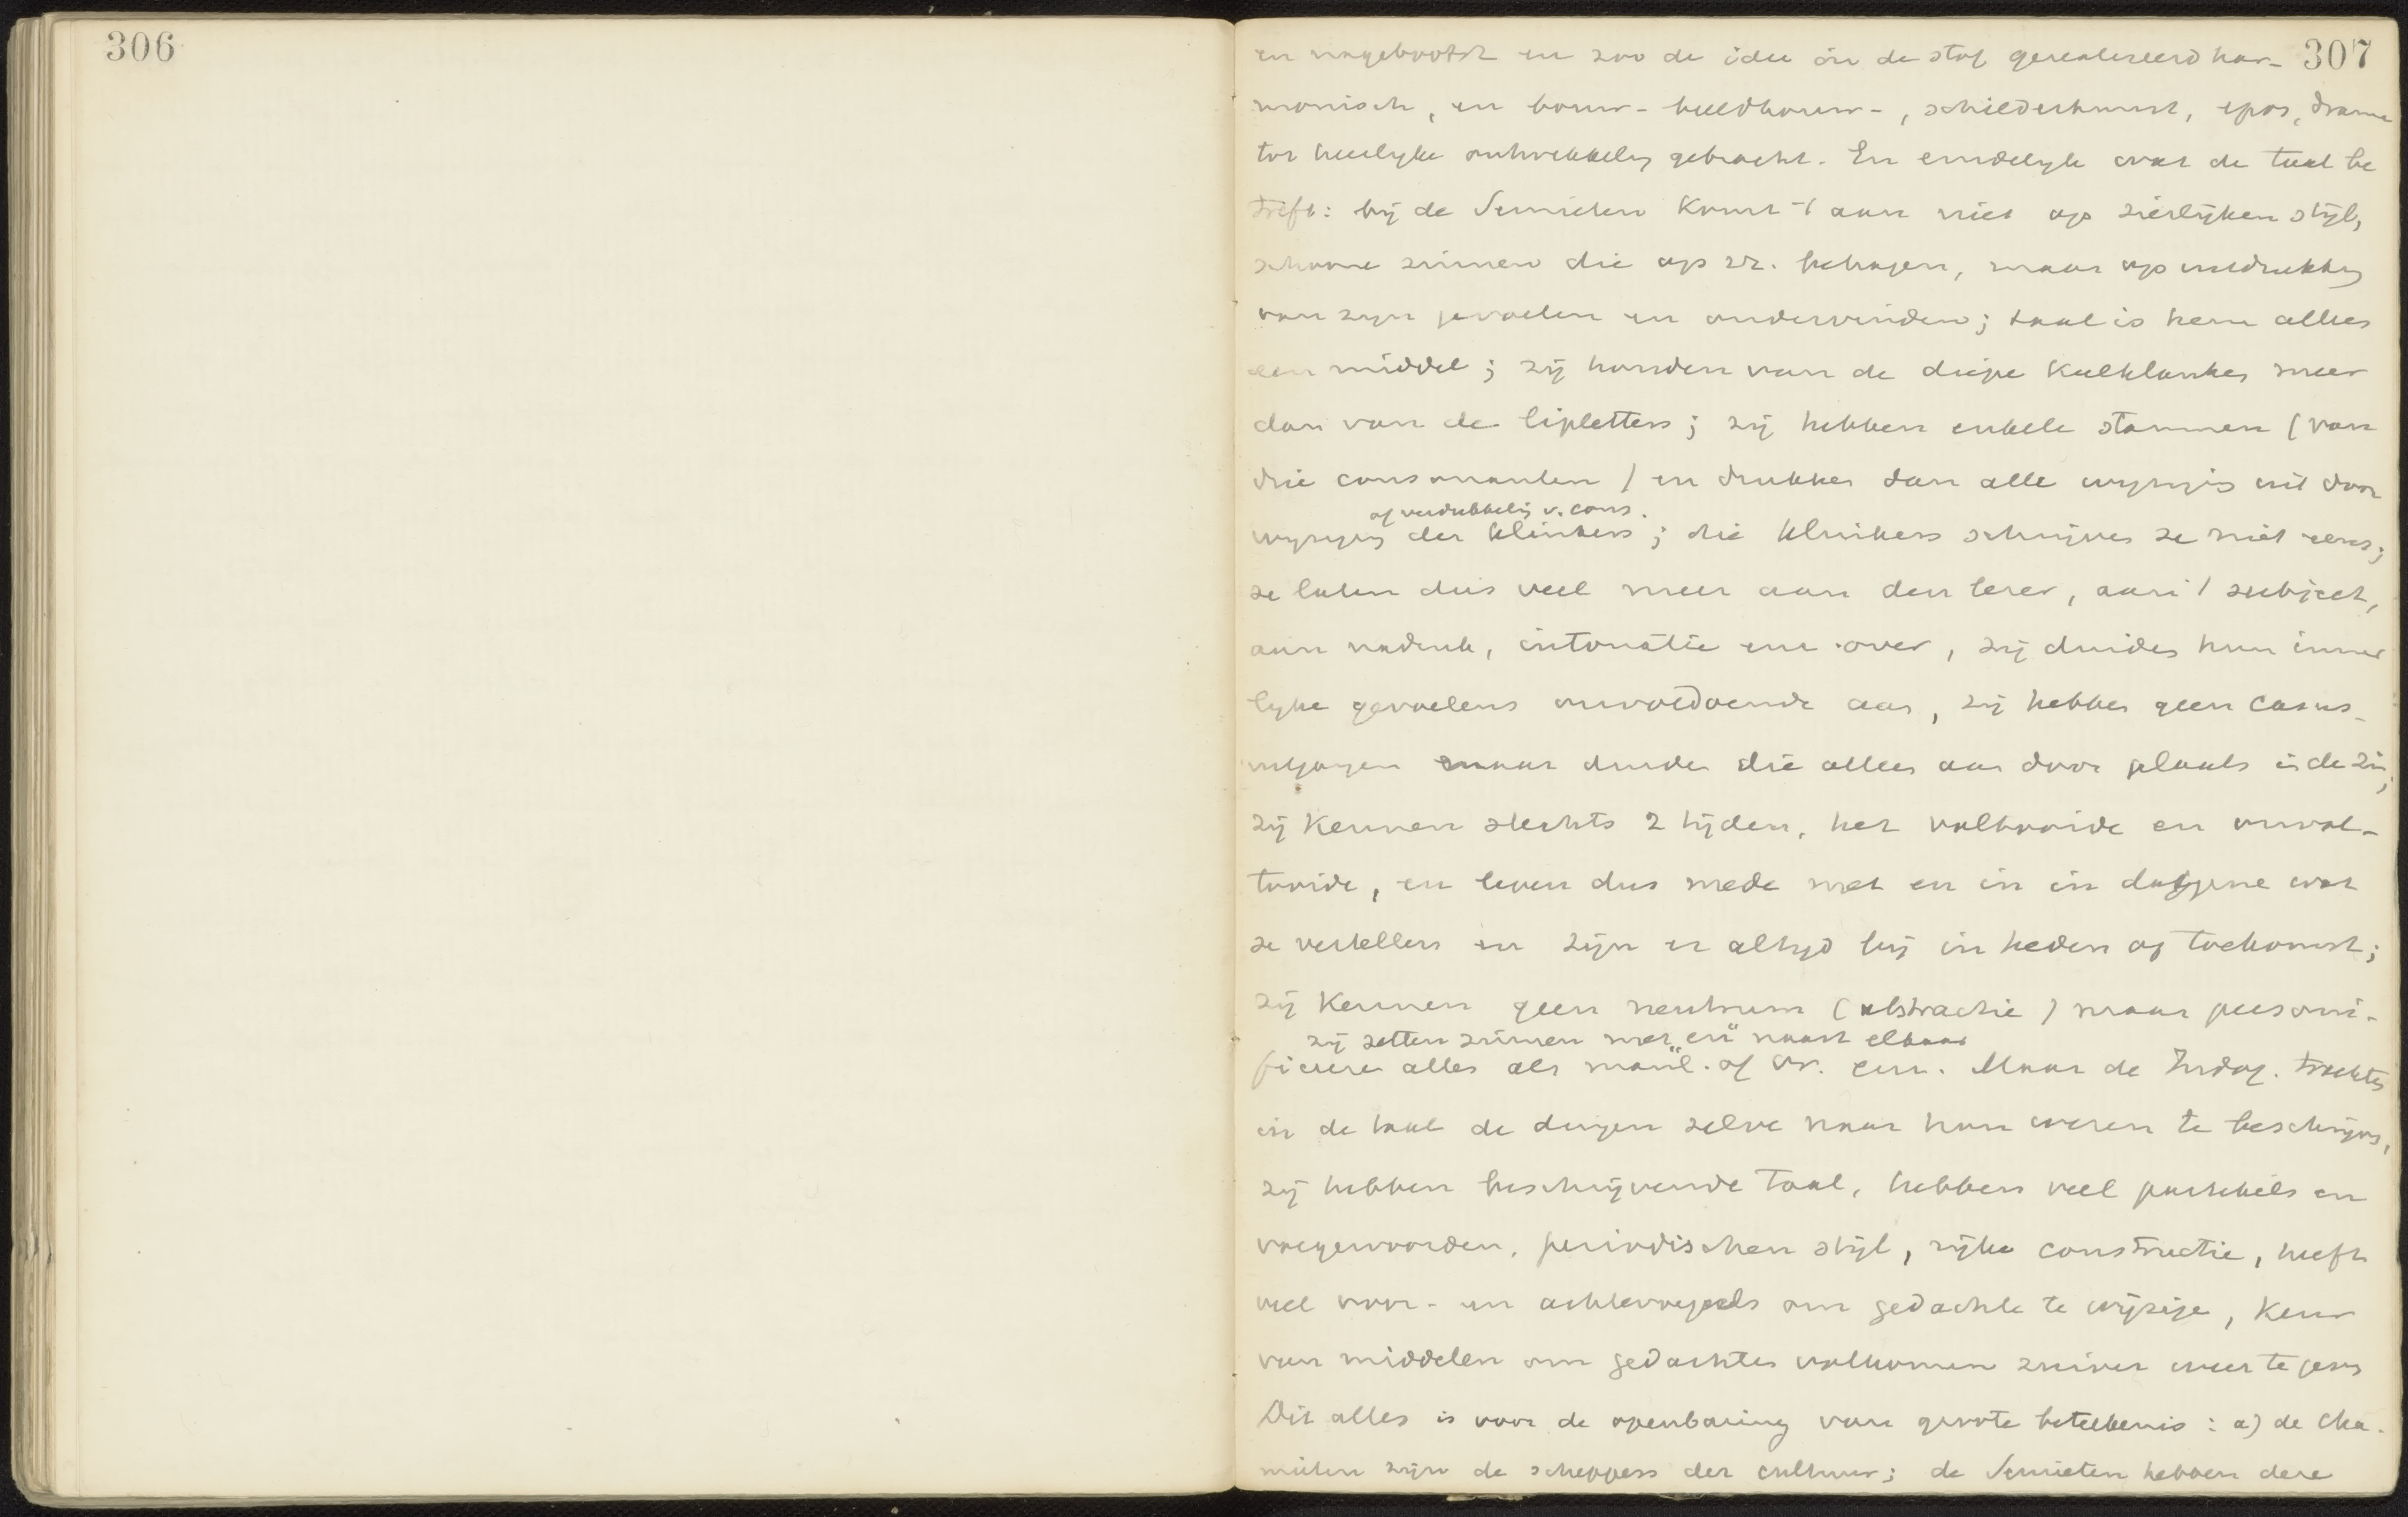 306
307
en nagebootst en zoo de idee in de stof gerealiseerd har-
monisch, en bouw- beeldhouw-, schilderkunst, epos, drama
tot heerlyke ontwikkeling gebracht. En eindelyk wat de taal be
treft: bij de Semieten komt 't aan niet op sierlijken stijl,
schoone zinnen die op zz. behagen, maar op uitdrukking
van zyn gevoelen en ondervinden; taal is hem alles
een middel; zij houden van de diepe keelklanken meer
dan van de lipletters; zij hebben enkele stammen (van
drie consonanten) en drukken dan alle wyziging uit door
of verdubbeling v. cons.
wyziging der klinkers; die klinkers schrijven ze niet eens;
ze laten dus veel meer aan den lezer, aan 't subject,
aan nadruk, intonatie enz over, zij duiden hun inner
lyke gevoelens onvoldoende aan, zij hebben geen casus-
uitgangen maar duiden die alleen aan door plaats in de zin;
zij kennen slechts 2 tijden, het voltooide en onvol-
tooide, en leven dus mede met en in in datgene wat
ze vertellen en zijn er altyd bij in heden of toekomst;
zij kennen geen neutrum (abstractie) maar personi-
zij zetten zinnen met "en" naast elkaar
ficeren alles als mannl. of vr. enz. Maar de Indog. trachten
in de taal de dingen zelve naar hun wezen te beschrijven,
zij hebben beschrijvende taal, hebben veel partikels en
voegwoorden, periodischen stijl, rijke constructie, heeft
veel voor- en achtervoegsels om gedachte te wijzigen, keur
van middelen om gedachten volkomen zuiver weer te geven
Dit alles is voor de openbaring van groote beteekenis: a) de Cha-
mieten zijn de scheppers der cultuur; de Semieten hebben deze